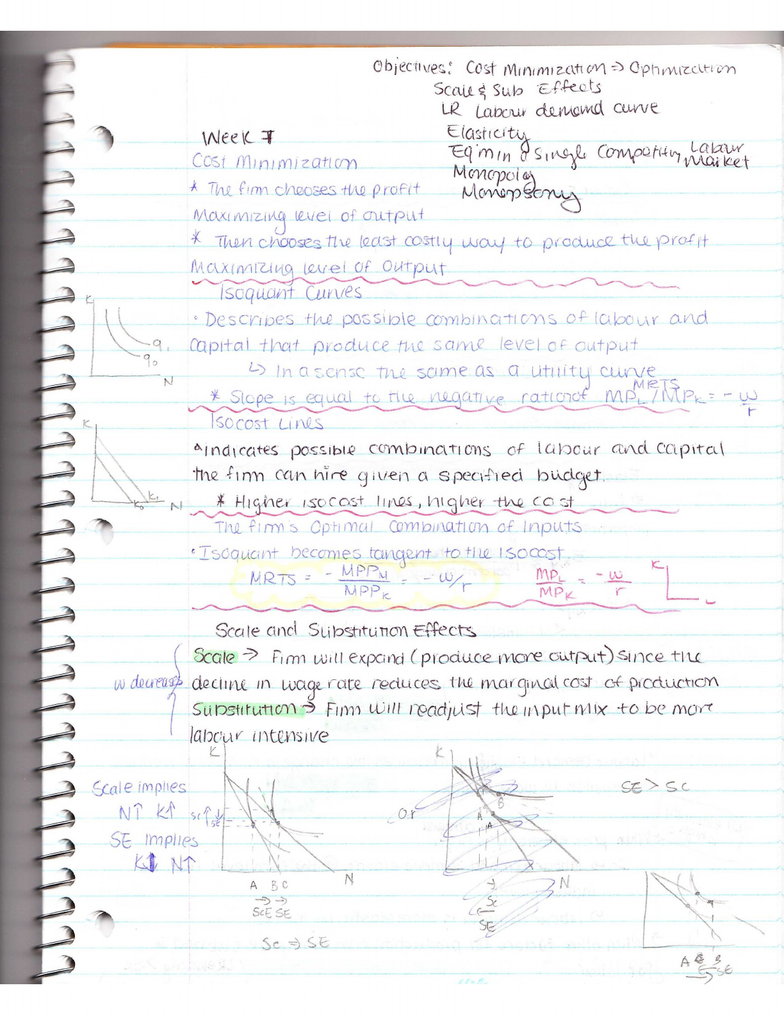 Objectives: Cost Minimization → Optimization
Scale & Sub Effects
LR Labour demand curve
Elasticity
Eq'm in a Single Competitiv Labour Market
Monopoly
Monopsony
Week 7
Cost Minimization
* The firm chooses the profit
Maximizing level of output
* Then chooses the least costly way to produce the profit
Maximizing level of Output
Isoquant Curves
K
q1
q0
N
• Describes the possible combinations of labour and
capital that produce the same level of output
↳ In a sense the same as a utility curve
* Slope is equal to the negative ration of MPL/MPK = -w/r
MRTS
Isocost Lines
K
K0 K1 N
• Indicates possible combinations of labour and capital
the firm can hire given a specified budget.
* Higher isocost lines, higher the cost
The firm's Optimal Combination of Inputs
• Isoquant becomes tangent to the Isocost
MRTS = -MPPN/MPPK = -w/r
MPL/MPK = -w/r
K
L
Scale and Substitution Effects
w decreases
Scale → Firm will expand (produce more output) since the
decline in wage rate reduces the marginal cost of production
Substitution → Firm will readjust the input mix to be more
labour intensive
Scale implies
N↑ K↑
SE implies
K↓ N↑
K
Sc↑ ↓SE
A B C
N
→ →
ScE SE
Sc → SE
Or
K
B
A
A
N
→
Sc
SE
SE > SC
A
B
SE